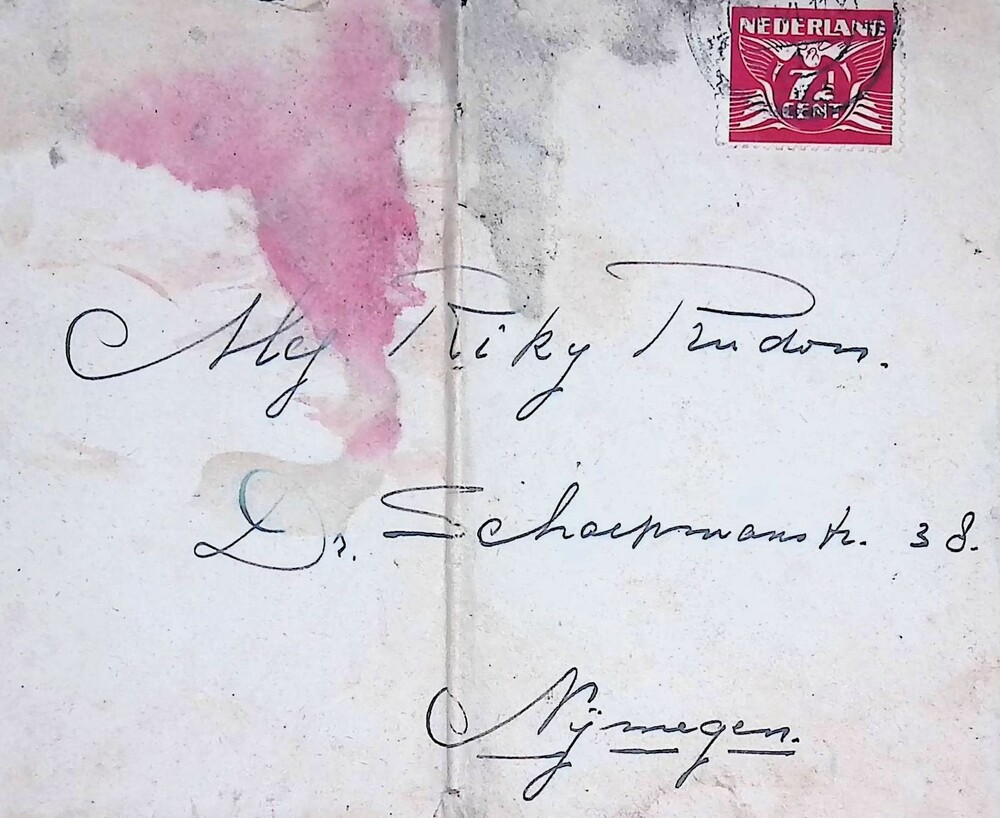 NEDERLAND
7½
CENT
Mej Riky Prudon.
Dr. Schaepmanstr. 38.
Nijmegen.